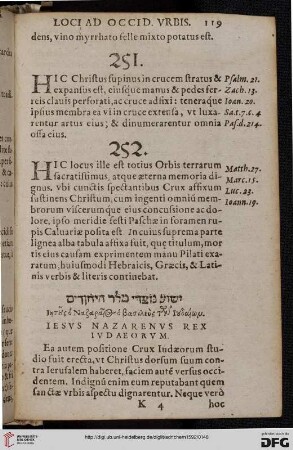 LOCI AD OCCID. VRBIS. 119
dens, vino myrrhato felle mixto potatus est.
251.
HIC Christus supinus in crucem stratus & Psalm. 21.
expansus est, eiusque manus & pedes fer- Zach. 13.
reis clauis perforati, ac cruce adfixi: teneraque Ioan. 20.
ipsius membra ea vi in cruce extensa, vt luxa- Sat. 7. 6. 4
rentur artus eius; & dinumerarentur omnia Pasa. 214.
ossa eius.
252.
HIC locus ille est totius Orbis terrarum
sacratissimus, atque æterna memoria di- Matth. 27.
gnus. vbi cunctis spectantibus Crux affixum Marc. 15.
sustinens Christum, cum ingenti omniū mem- Luc. 23.
brorum viscerumque eius concussione ac do- Ioann. 19.
lore, ipso meridie festi Paschæ in foramen ru-
pis Caluariæ posita est In cuius suprema parte
lignea alba tabula affixa fuit, quę titulum, mor
tis eius causam exprimentem manu Pilati exa-
ratum, huiusmodi Hebraicis, Græcis, & Lati-
nis verbis & literis continebat.
ישוע מלך היהודים
Ἰησῦς ὁ Ναζαραῖ ὁ βασιλεὺς τῶν Ἰυδαίων.
IESVS NAZARENVS REX
IVDAEORVM.
Ea autem positione Crux Iudæorum stu-
dio fuit erecta, vt Christus dorsum suum con
tra Ierusalem haberet, faciem autē versus occi-
dentem. Indignū enim eum reputabant quem
sanctæ vrbis aspectu dignarentur. Neque verò
K 4 hoc
http://digi.ub.uni-heidelberg.de/diglit/adrichem1592/0146
UNIVERSITÄTS-
BIBLIOTHEK
HEIDELBERG
Gefördert durch die
DFG